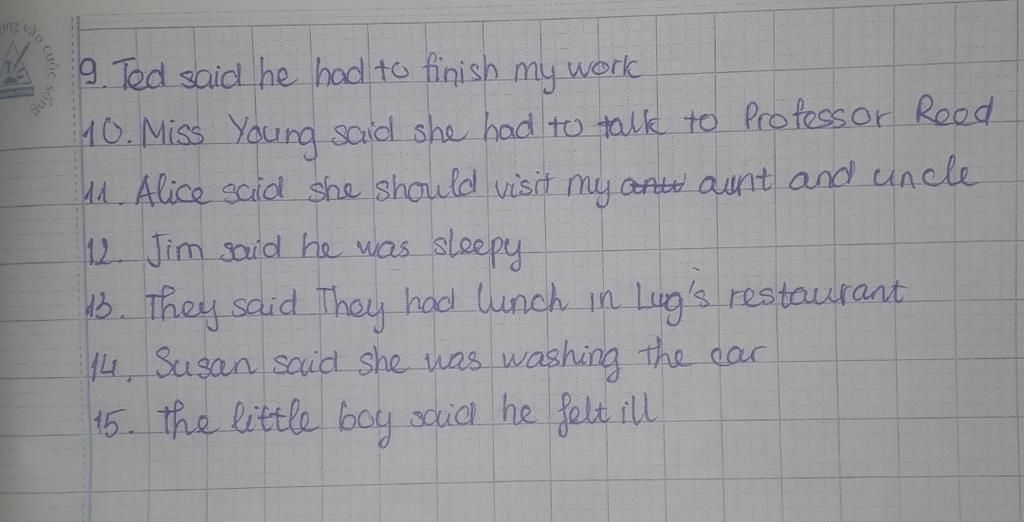 ong vào cuộc sống
9. Ted said he had to finish my work
10. Miss Young said she had to talk to Professor Reed
11. Alice said she should visit my aunt and uncle
12. Jim said he was sleepy
13. They said They had lunch in Lug's restaurant
14. Susan said she was washing the car
15. the little boy said he felt ill